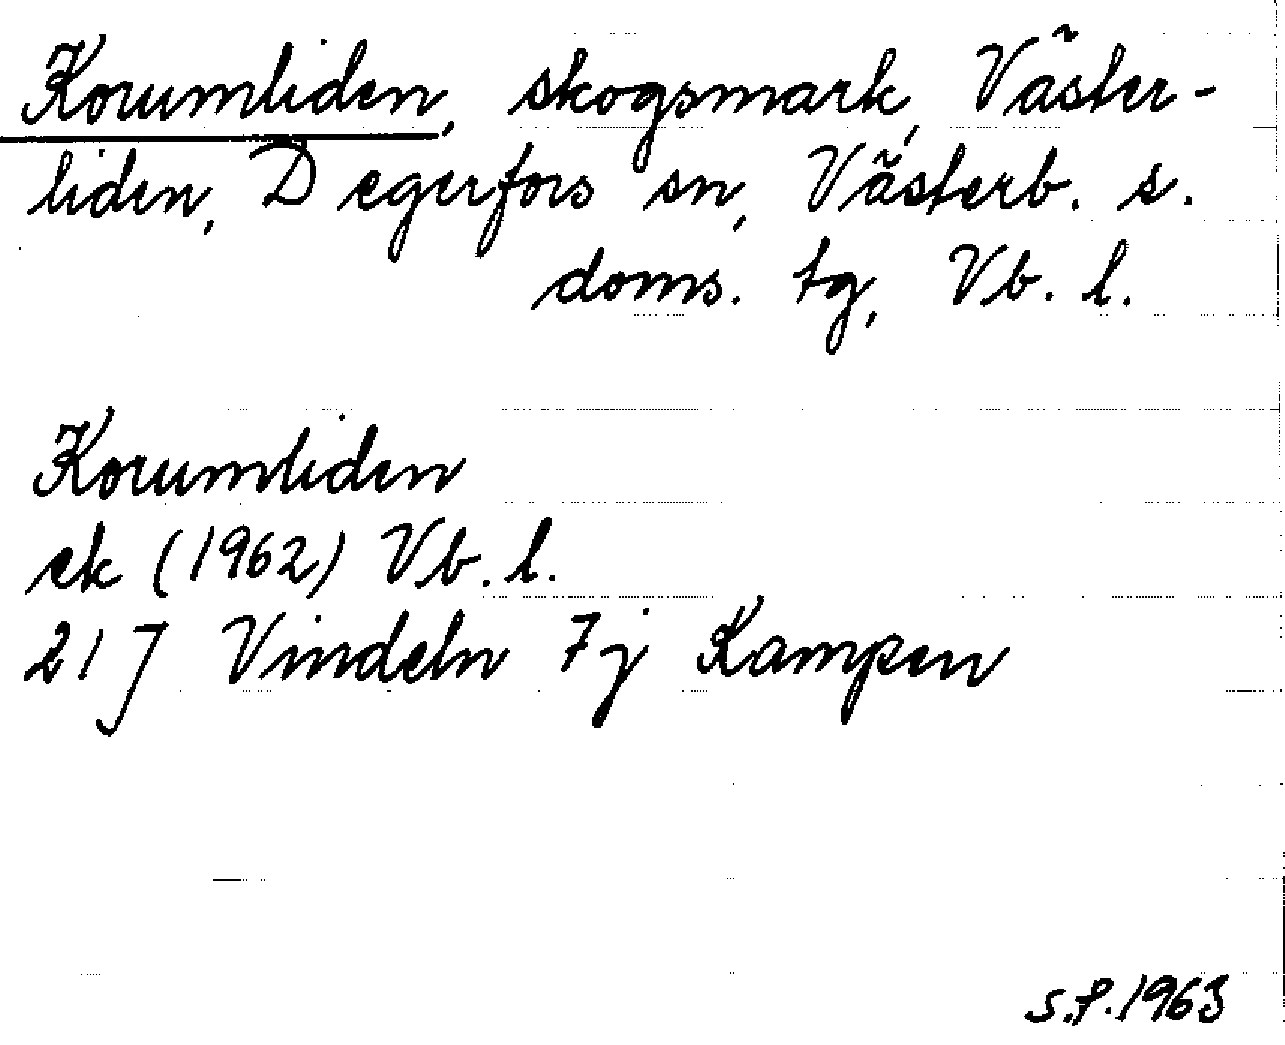 Korumliden, skogsmark, Väster-
liden, Degerfors sn, Västerb. s.
doms. tg, Vb. l.
Korumliden
ek (1962) Vb. l.
21J Vindeln 7j Kampen
S.P. 1963